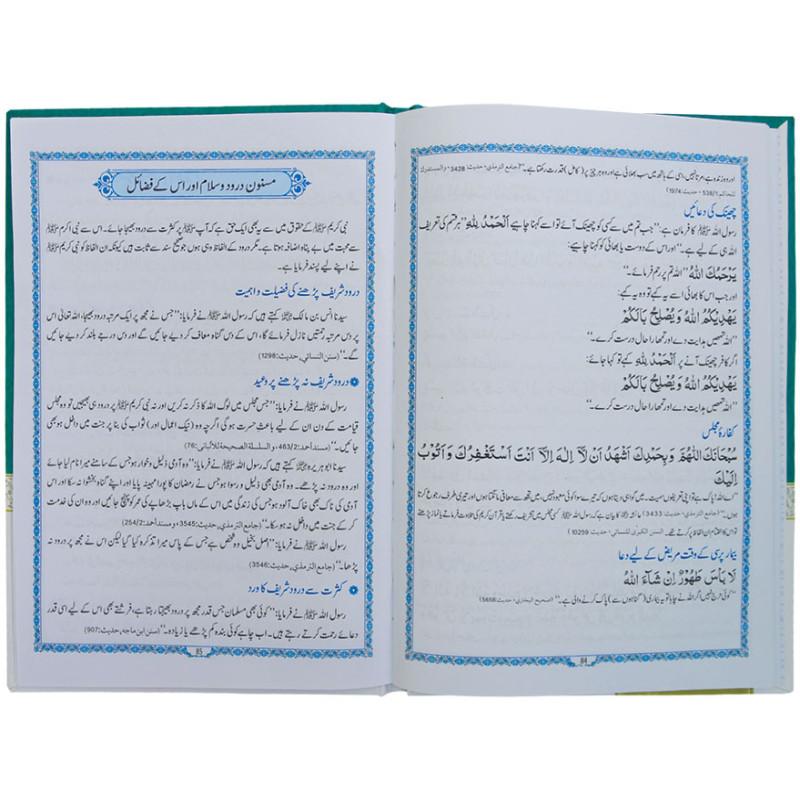 اور وہ زندہ ہے، مرتا نہیں، اسی کے ہاتھ میں سب بھلائی ہے اور وہ ہر چیز پر (کامل) قدرت رکھتا ہے۔“ (جامع الترمذي، حديث: 3428 والمستدرك
للحاكم: 538/1، حديث: 1974)
چھینک کی دعائیں
رسول اللہ ﷺ کا فرمان ہے: ”جب تم میں سے کسی کو چھینک آئے تو اسے کہنا چاہیے اَلْحَمْدُ لِلّٰهِ ”ہر قسم کی تعریف
اللہ ہی کے لیے ہے۔“ اور اس کے دوست یا بھائی کو کہنا چاہیے:
يَرْحَمُكَ اللّٰهُ ”اللہ تم پر رحم فرمائے۔“
اور جب اس کا بھائی اسے یہ کہے تو وہ یہ کہے:
يَهْدِيْكُمُ اللّٰهُ وَيُصْلِحُ بَالَكُمْ
”اللہ تمھیں ہدایت دے اور تمھارا حال درست کرے۔“
اگر کافر چھینک آنے پر اَلْحَمْدُ لِلّٰهِ کہے تو کہا جائے:
يَهْدِيْكُمُ اللّٰهُ وَيُصْلِحُ بَالَكُمْ
”اللہ تمھیں ہدایت دے اور تمھارا حال درست کرے۔“
کفارۂ مجلس
سُبْحَانَكَ اللّٰهُمَّ وَبِحَمْدِكَ اَشْهَدُ اَنْ لَّآ اِلٰهَ اِلَّا اَنْتَ اَسْتَغْفِرُكَ وَاَتُوْبُ
اِلَيْكَ
”اے اللہ! پاک ہے تو اپنی تعریفوں سمیت۔ میں گواہی دیتا ہوں کہ تیرے سوا کوئی معبود نہیں، میں تجھ سے معافی مانگتا ہوں اور تیری طرف رجوع کرتا
ہوں۔“ (جامع الترمذي، حديث: 3433) کا بیان ہے کہ رسول اللہ ﷺ کسی مجلس میں تشریف رکھتے یا قرآن کریم کی تلاوت فرماتے یا نماز پڑھتے
تو اس کا اختتام ان الفاظ پر کرتے تھے۔ (السنن الكبرى للنسائي، حديث: 10259)
بیمار پرسی کے وقت مریض کے لیے دعا
لَا بَاْسَ طَهُوْرٌ اِنْ شَآءَ اللّٰهُ
”کوئی حرج نہیں اگر اللہ نے چاہا تو یہ بیماری (گناہوں سے) پاک کرنے والی ہے۔“ (صحيح البخاري، حديث: 5656)
84
مسنون درود وسلام اور اس کے فضائل
نبی کریم ﷺ کے حقوق میں سے یہ بھی ایک حق ہے کہ آپ ﷺ پر کثرت سے درود بھیجا جائے۔ اس سے نبی اکرم ﷺ
سے محبت میں بے پناہ اضافہ ہوتا ہے۔ مگر درود کے الفاظ وہی ہوں جو صحیح سند سے ثابت ہیں کیونکہ ان الفاظ کو نبی ﷺ
نے اپنے لیے پسند فرمایا ہے۔
درود شریف پڑھنے کی فضیلت واہمیت
سیدنا انس بن مالک کہتے ہیں کہ رسول اللہ ﷺ نے فرمایا: ”جس نے مجھ پر ایک مرتبہ درود بھیجا، اللہ تعالیٰ اس
پر دس مرتبہ رحمتیں نازل فرمائے گا، اس کے دس گناہ معاف کر دیے جائیں گے اور دس درجے بلند کر دیے جائیں
گے۔“ (سنن النسائي، حديث: 1298)
درود شریف نہ پڑھنے پر وعید
رسول اللہ ﷺ نے فرمایا: ”جس مجلس میں لوگ اللہ کا ذکر نہ کریں اور نہ نبی کریم ﷺ پر درود ہی بھیجیں تو وہ مجلس
قیامت کے دن ان کے لیے باعث حسرت ہو گی اگرچہ وہ (نیک اعمال اور) ثواب کی بنا پر جنت میں داخل ہو بھی
جائیں۔“ (مسند أحمد: 463/2، والسلسلة الصحيحة للألباني: 76)
سیدنا ابوہریرہ کہتے ہیں کہ رسول اللہ ﷺ نے فرمایا: ”وہ آدمی ذلیل وخوار ہو جس کے سامنے میرا نام لیا جائے
اور وہ درود نہ پڑھے۔ وہ آدمی بھی ذلیل و رسوا ہو جس نے رمضان کا پورا مہینہ پایا اور اپنے گناہ بخشوا نہ سکا اور اس
آدمی کی ناک بھی خاک آلود ہو جس کی زندگی میں اس کے ماں باپ بڑھاپے کی عمر کو پہنچ جائیں اور وہ ان کی خدمت
کر کے جنت میں داخل نہ ہو سکا۔“ (جامع الترمذي، حديث: 3545، ومسند أحمد: 254/2)
رسول اللہ ﷺ نے فرمایا: ”اصل بخیل وہ شخص ہے جس کے پاس میرا تذکرہ کیا گیا لیکن اس نے مجھ پر درود نہ
پڑھا۔“ (جامع الترمذي، حديث: 3546)
کثرت سے درود شریف کا ورد
رسول اللہ ﷺ نے فرمایا: ”کوئی بھی مسلمان جس قدر مجھ پر درود بھیجتا رہتا ہے، فرشتے بھی اس کے لیے اسی قدر
دعائے رحمت کرتے رہتے ہیں۔ اب چاہے کوئی بندہ کم پڑھے یا زیادہ۔“ (سنن ابن ماجه، حديث: 907)
85